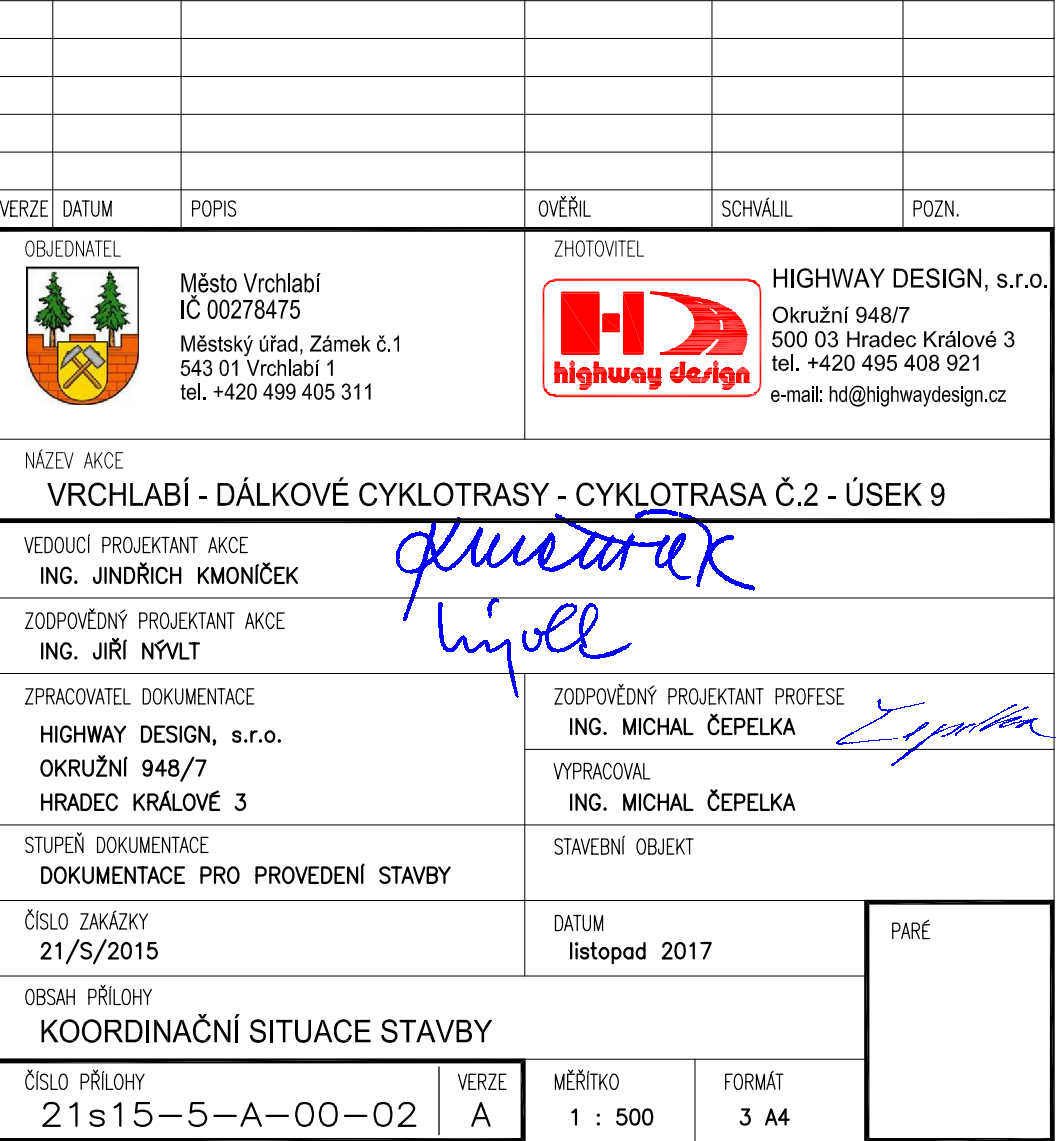 VERZE DATUM POPIS OVĚŘIL SCHVÁLIL POZN.
OBJEDNATEL
Město Vrchlabí
IČ 00278475
Městský úřad, Zámek č.1
543 01 Vrchlabí 1
tel. +420 499 405 311
ZHOTOVITEL
highway design
HIGHWAY DESIGN, s.r.o.
Okružní 948/7
500 03 Hradec Králové 3
tel. +420 495 408 921
e-mail: hd@highwaydesign.cz
NÁZEV AKCE
VRCHLABÍ - DÁLKOVÉ CYKLOTRASY - CYKLOTRASA Č.2 - ÚSEK 9
VEDOUCÍ PROJEKTANT AKCE
ING. JINDŘICH KMONÍČEK
ZODPOVĚDNÝ PROJEKTANT AKCE
ING. JIŘÍ NÝVLT
ZPRACOVATEL DOKUMENTACE
HIGHWAY DESIGN, s.r.o.
OKRUŽNÍ 948/7
HRADEC KRÁLOVÉ 3
ZODPOVĚDNÝ PROJEKTANT PROFESE
ING. MICHAL ČEPELKA
VYPRACOVAL
ING. MICHAL ČEPELKA
STUPEŇ DOKUMENTACE
DOKUMENTACE PRO PROVEDENÍ STAVBY
STAVEBNÍ OBJEKT
ČÍSLO ZAKÁZKY
21/S/2015
DATUM
listopad 2017
PARÉ
OBSAH PŘÍLOHY
KOORDINAČNÍ SITUACE STAVBY
ČÍSLO PŘÍLOHY
21s15-5-A-00-02
VERZE
A
MĚŘÍTKO
1 : 500
FORMÁT
3 A4